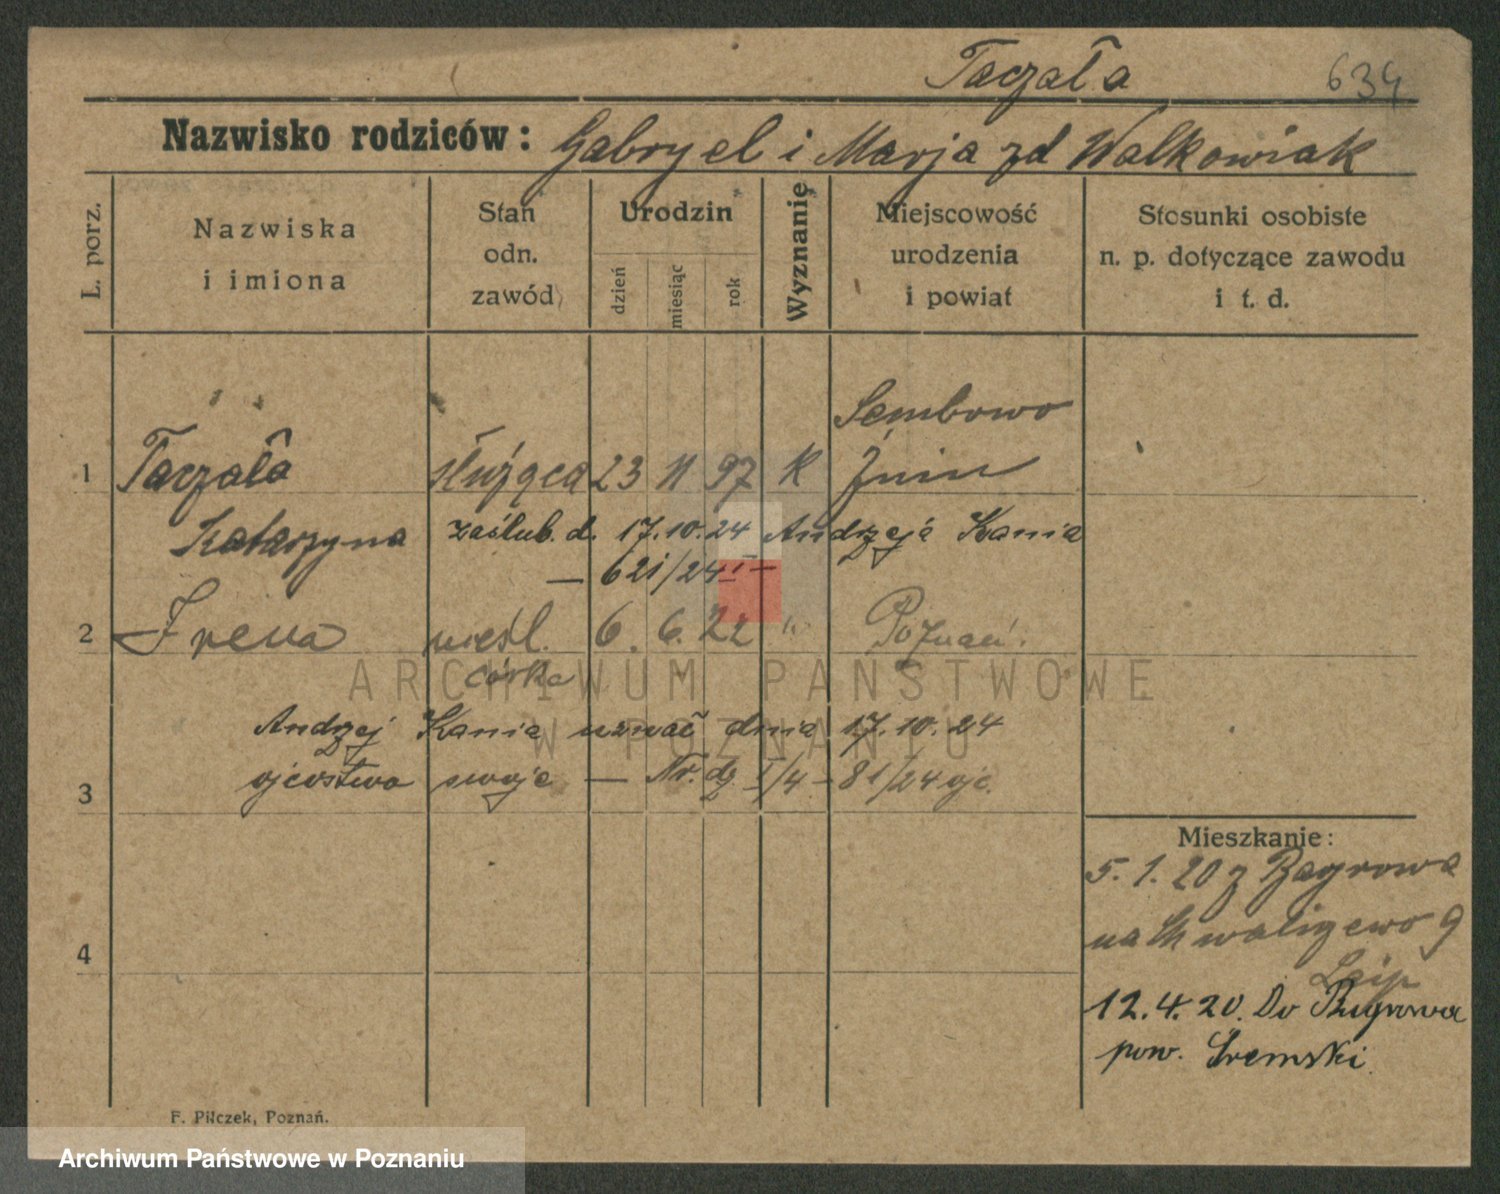 Taczała 634
Nazwisko rodziców: Gabryel i Marja zd Walkowiak
L. porz.
Nazwiska
i imiona
Stan
odn.
zawód
Urodzin
dzień
miesiąc
rok
Wyznanie
Miejscowość
urodzenia
i powiat
Stosunki osobiste
n. p. dotyczące zawodu
i t. d.
Sembowo
1 Taczała służąca 23 11 97 K Żnin
Katarzyna zaślub. d. 17.10.24 Andrzeja Kania
— 621/24 I —
2 Irena nieśl. 6. 6. 22 " Poznań.
córka
Andrzej Kania uznał dnia 17.10.24
3 ojcostwo swoje — Nr. dz. I/4 - 81/24 ojc.
4
Mieszkanie:
5.1.20 z Bagrowa
na Chwaliszewo 9
12.4.20. Do Bagrowa
pow. Śremski
F. Pilczek, Poznań.
ARCHIWUM PAŃSTWOWE
W POZNANIU
Archiwum Państwowe w Poznaniu